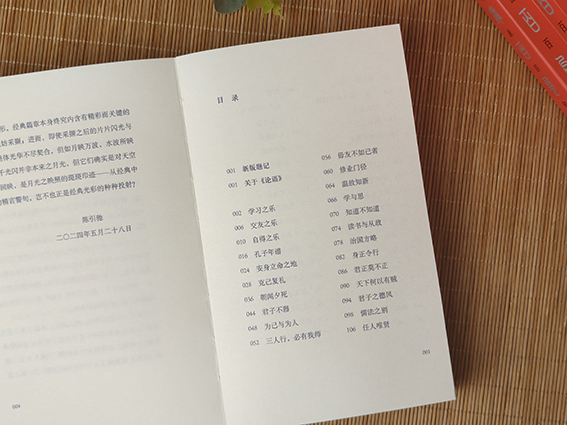 形、经典篇章本身终究内含有精彩而关键的
采撷；进而，即使采撷之后的片片闪光与
体光华不尽契合，但如月映万波、水波所映
千光闪并非本来之月光，但它们确实是对天空
回映，是月光之映照的斑斑印迹——从经典中
的精言警句，岂不也正是经典光彩的种种投射？
陈引驰
二〇二四年五月二十八日
006
目 录
001 新版题记
001 关于《论语》
002 学习之乐
008 交友之乐
010 自得之乐
016 孔子年谱
024 安身立命之地
028 克己复礼
036 朝闻夕死
044 君子不器
048 为己与为人
052 三人行，必有我师
056 毋友不如己者
060 修业门径
064 温故知新
066 学与思
070 知道不知道
074 读书与从政
078 治国方略
082 身正令行
086 君正莫不正
090 天下何以有贼
094 君子之德风
098 儒法之别
106 任人唯贤
001